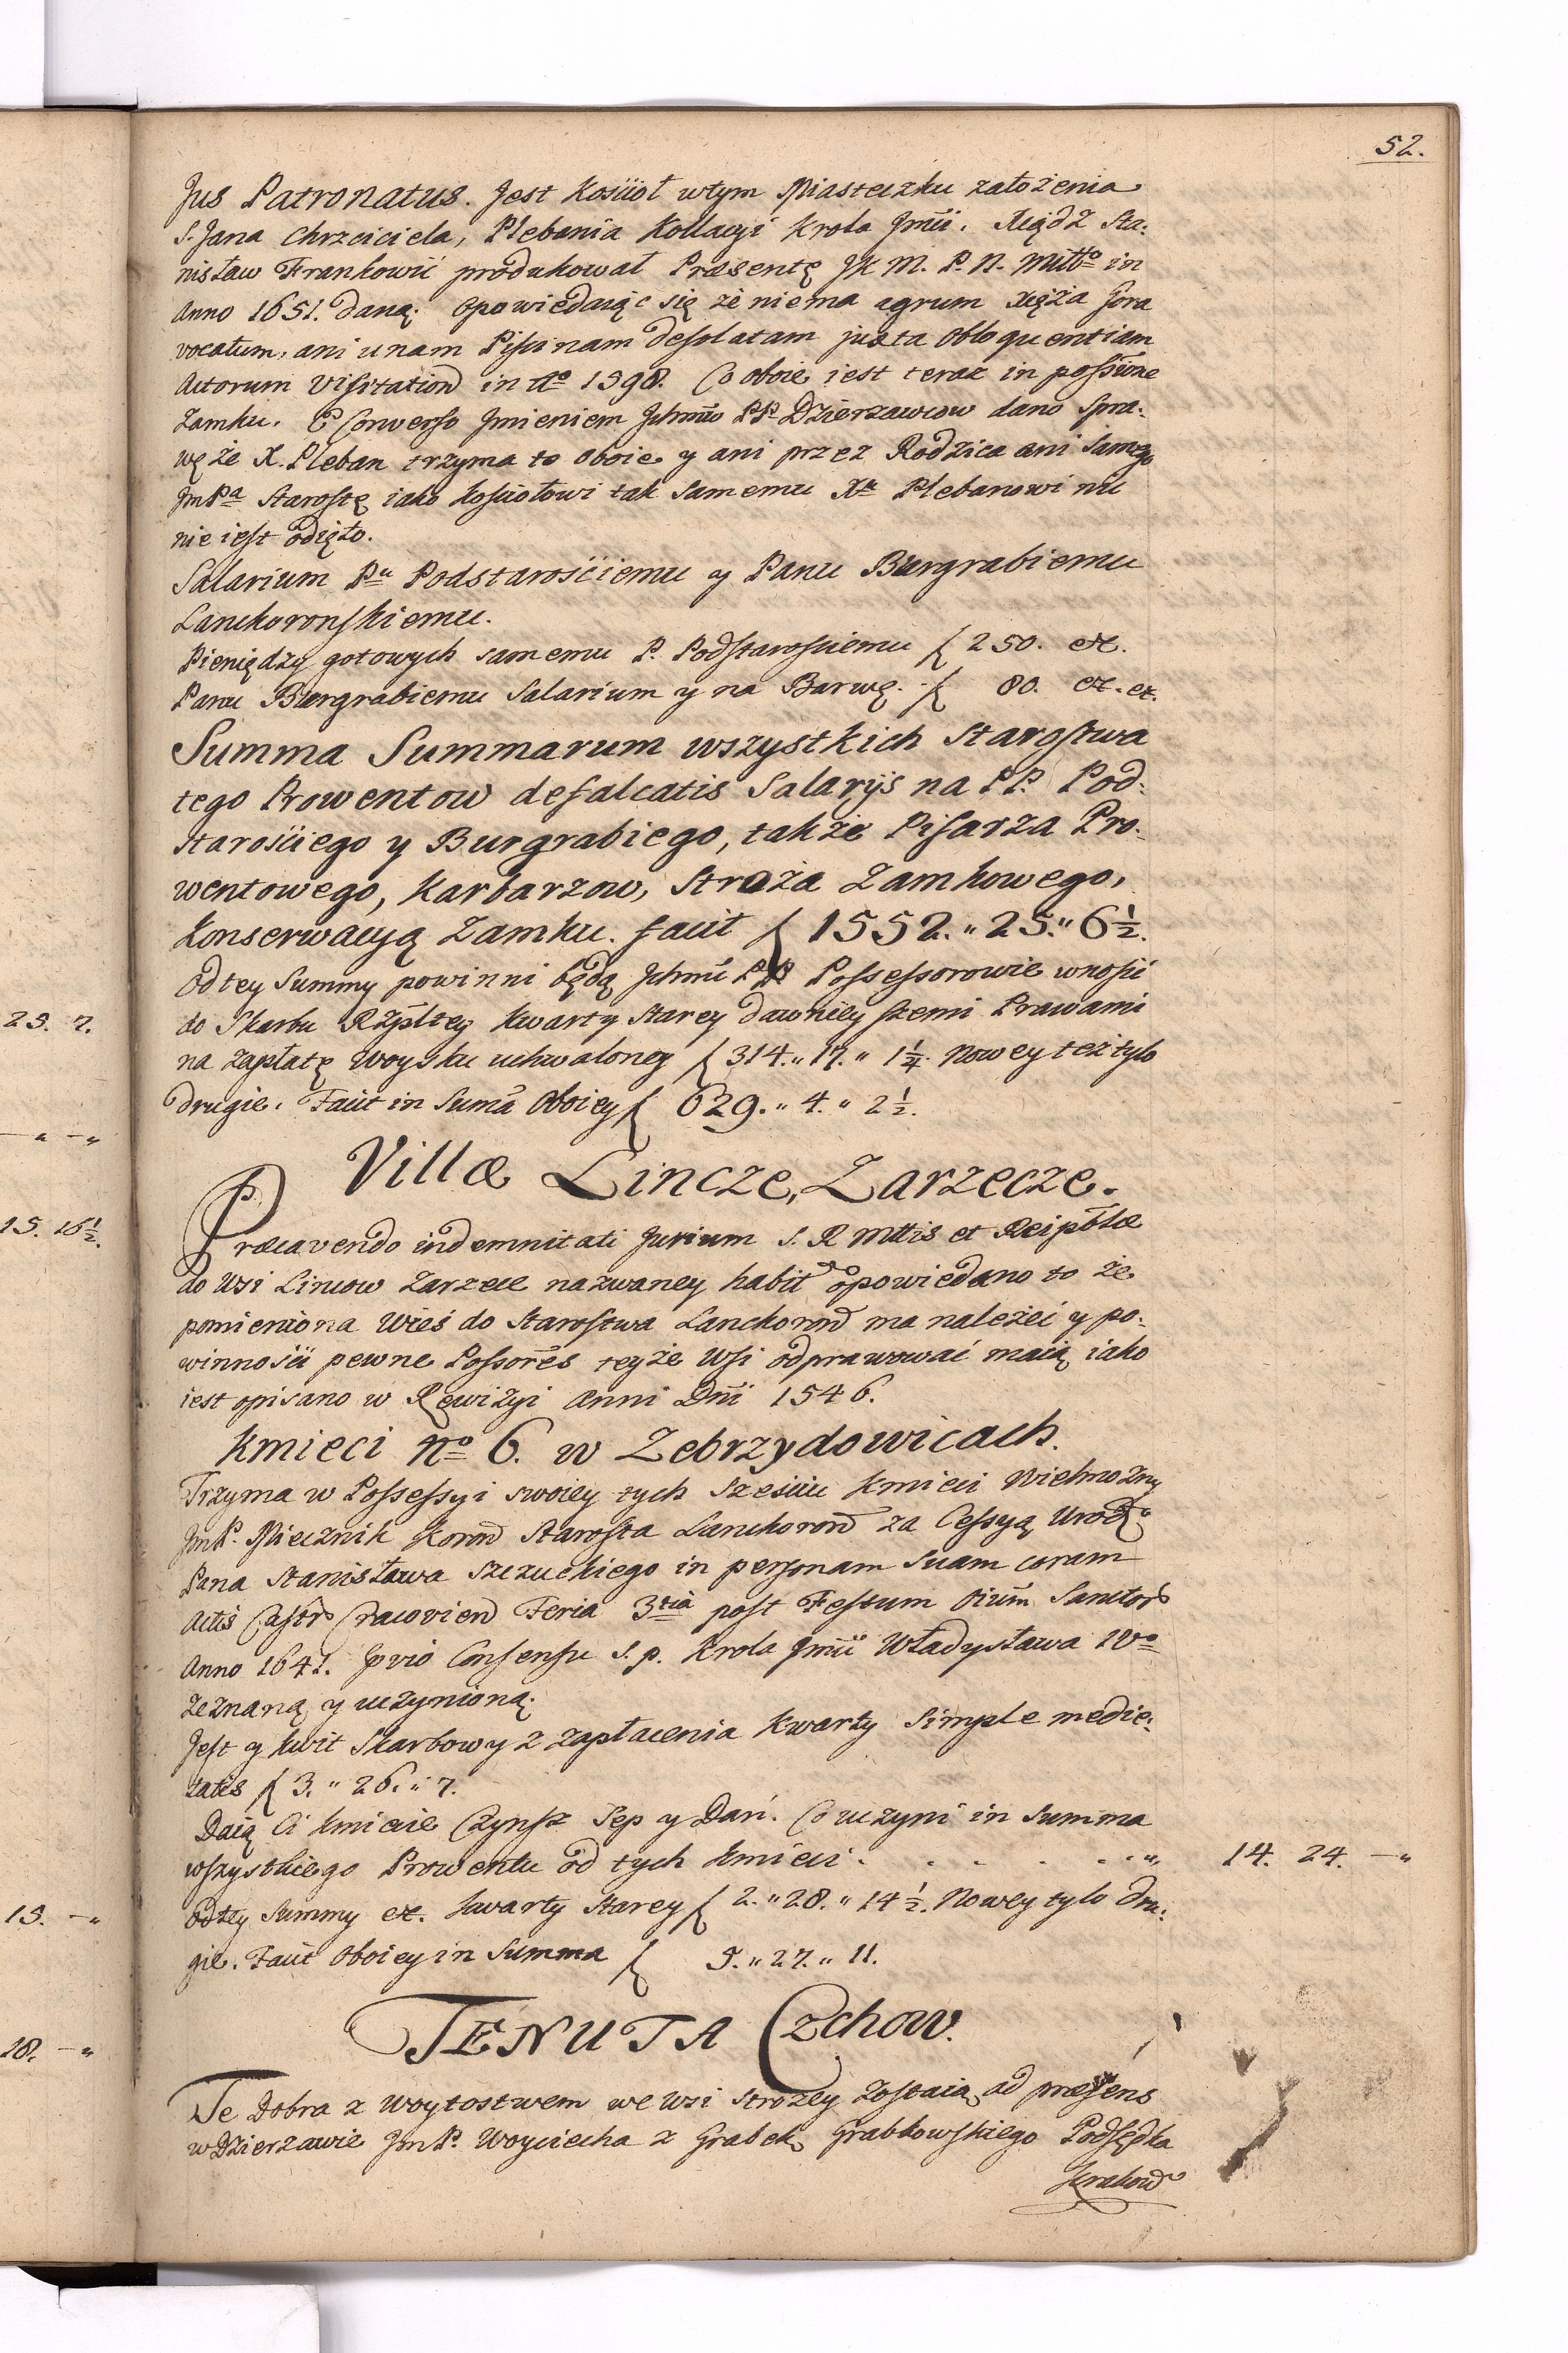 52.
Jus Patronatus. Jest Kościoł wtym Miasteczku założenia
S. Jana Chrzciciela, Plebania Kollacyi Krola Jmći. Xiądz Sta:
nisław Frankowić produkował Præsentę JK M. P. N. Mitto in
Anno 1651. daną: opowiedaiąc się że niema agrum Xięża Gora
vocatum, ani unam Piscinam desolatam juxta obloquentiam
Actorum Visitation in Ao 1598. Co oboie iest teraz in possione
Zamku. E Converso Jmieniem Jchmciow PP Dzierzawcow dano Spra:
wę że X. Pleban trzyma to oboie y ani przez Rodzica ani Samego
JmPa Starostę iako kościołowi tak Samemu Xu Plebanowi nic
nie iest odięto.
Salarium Pu Podstarościemu y Panu Burgrabiemu
Lanckoronskiemu.
Pieniędzy gotowych samemu P. Podstarosciemu ƒ 250. etc.
Panu Burgrabiemu Salarium y na Barwę. ƒ 80. etc. etc.
Summa Summarum wszystkich Starostwa
tego Prowentow defalcatis Salarijs na PP. Pod:
starościego y Burgrabiego, także Pisarza Pro:
wentowego, Karbarzow, Stroża Zamkowego,
Konserwacyą Zamku. facit ƒ 1552. " 25. " 6 1/2.
Od tey Summy powinni będą Jchmć PP Possessorowie wnosić
do Skarbu Rzpltey Kwarty Starey dawnieyszemi Prawami
na zapłatę Woysku uchwaloney ƒ 314. " 17. " 1 1/4. Nowey też tylo
drugie. Facit in Sumã Oboiey ƒ 629. " 4. " 2 1/2.
Villæ Lincze, Zarzecze.
Præcavendo indemnitati Jurium S. R Mttis et Reipblcæ
do Wsi Lincow Zarzecze nazwaney habit opowiedano to że
pomieniona Wieś do Starostwa Lanckoron ma należeć y po:
winności pewne Possores teyże Wsi odprawować maią iako
iest opisano w Rewizyi Anni Dñi 1546.
Kmieci No 6. w Zebrzydowicach.
Trzyma w Possessyi swoiey tych Sześciu Kmieci Wielmożny
JmP. Miecznik Koron Starosta Lanckoron za Cessyą Urodz
Pana Stanisława Szczuckiego in personam Suam coram
Actis Castr Cracovien Feria 3tia post Festum Oium Sanctor
Anno 1641. pvio Consensu S. p. Krola Jmći Władysława IVo
zeznaną y uczynioną.
Jest y kwit Skarbowy z zapłacenia Kwarty Simple medie:
tatis ƒ 3. " 26. " 7.
Daią Ci kmiecie Czynsz Sep y Dań. Co uczyni in Summa
wszystkiego Prowentu od tych kmieci . . . . . . . " 14. 24. — "
Od tey Summy etc. kwarty Starey ƒ 2. " 28. " 14 1/2. Nowey tylo dru:
gie. Facit Oboiey in Summa ƒ 5. " 27. " 11.
TENUTA Czchow.
Te Dobra z Woytostwem we Wsi Strozey zostaią ad præsens
w Dzierzawie JmP. Woyciecha z Grabek Grabkowskiego Podsędka
Krakow
25. 7.
— " — "
15. 16 1/2.
15. — "
18. — "